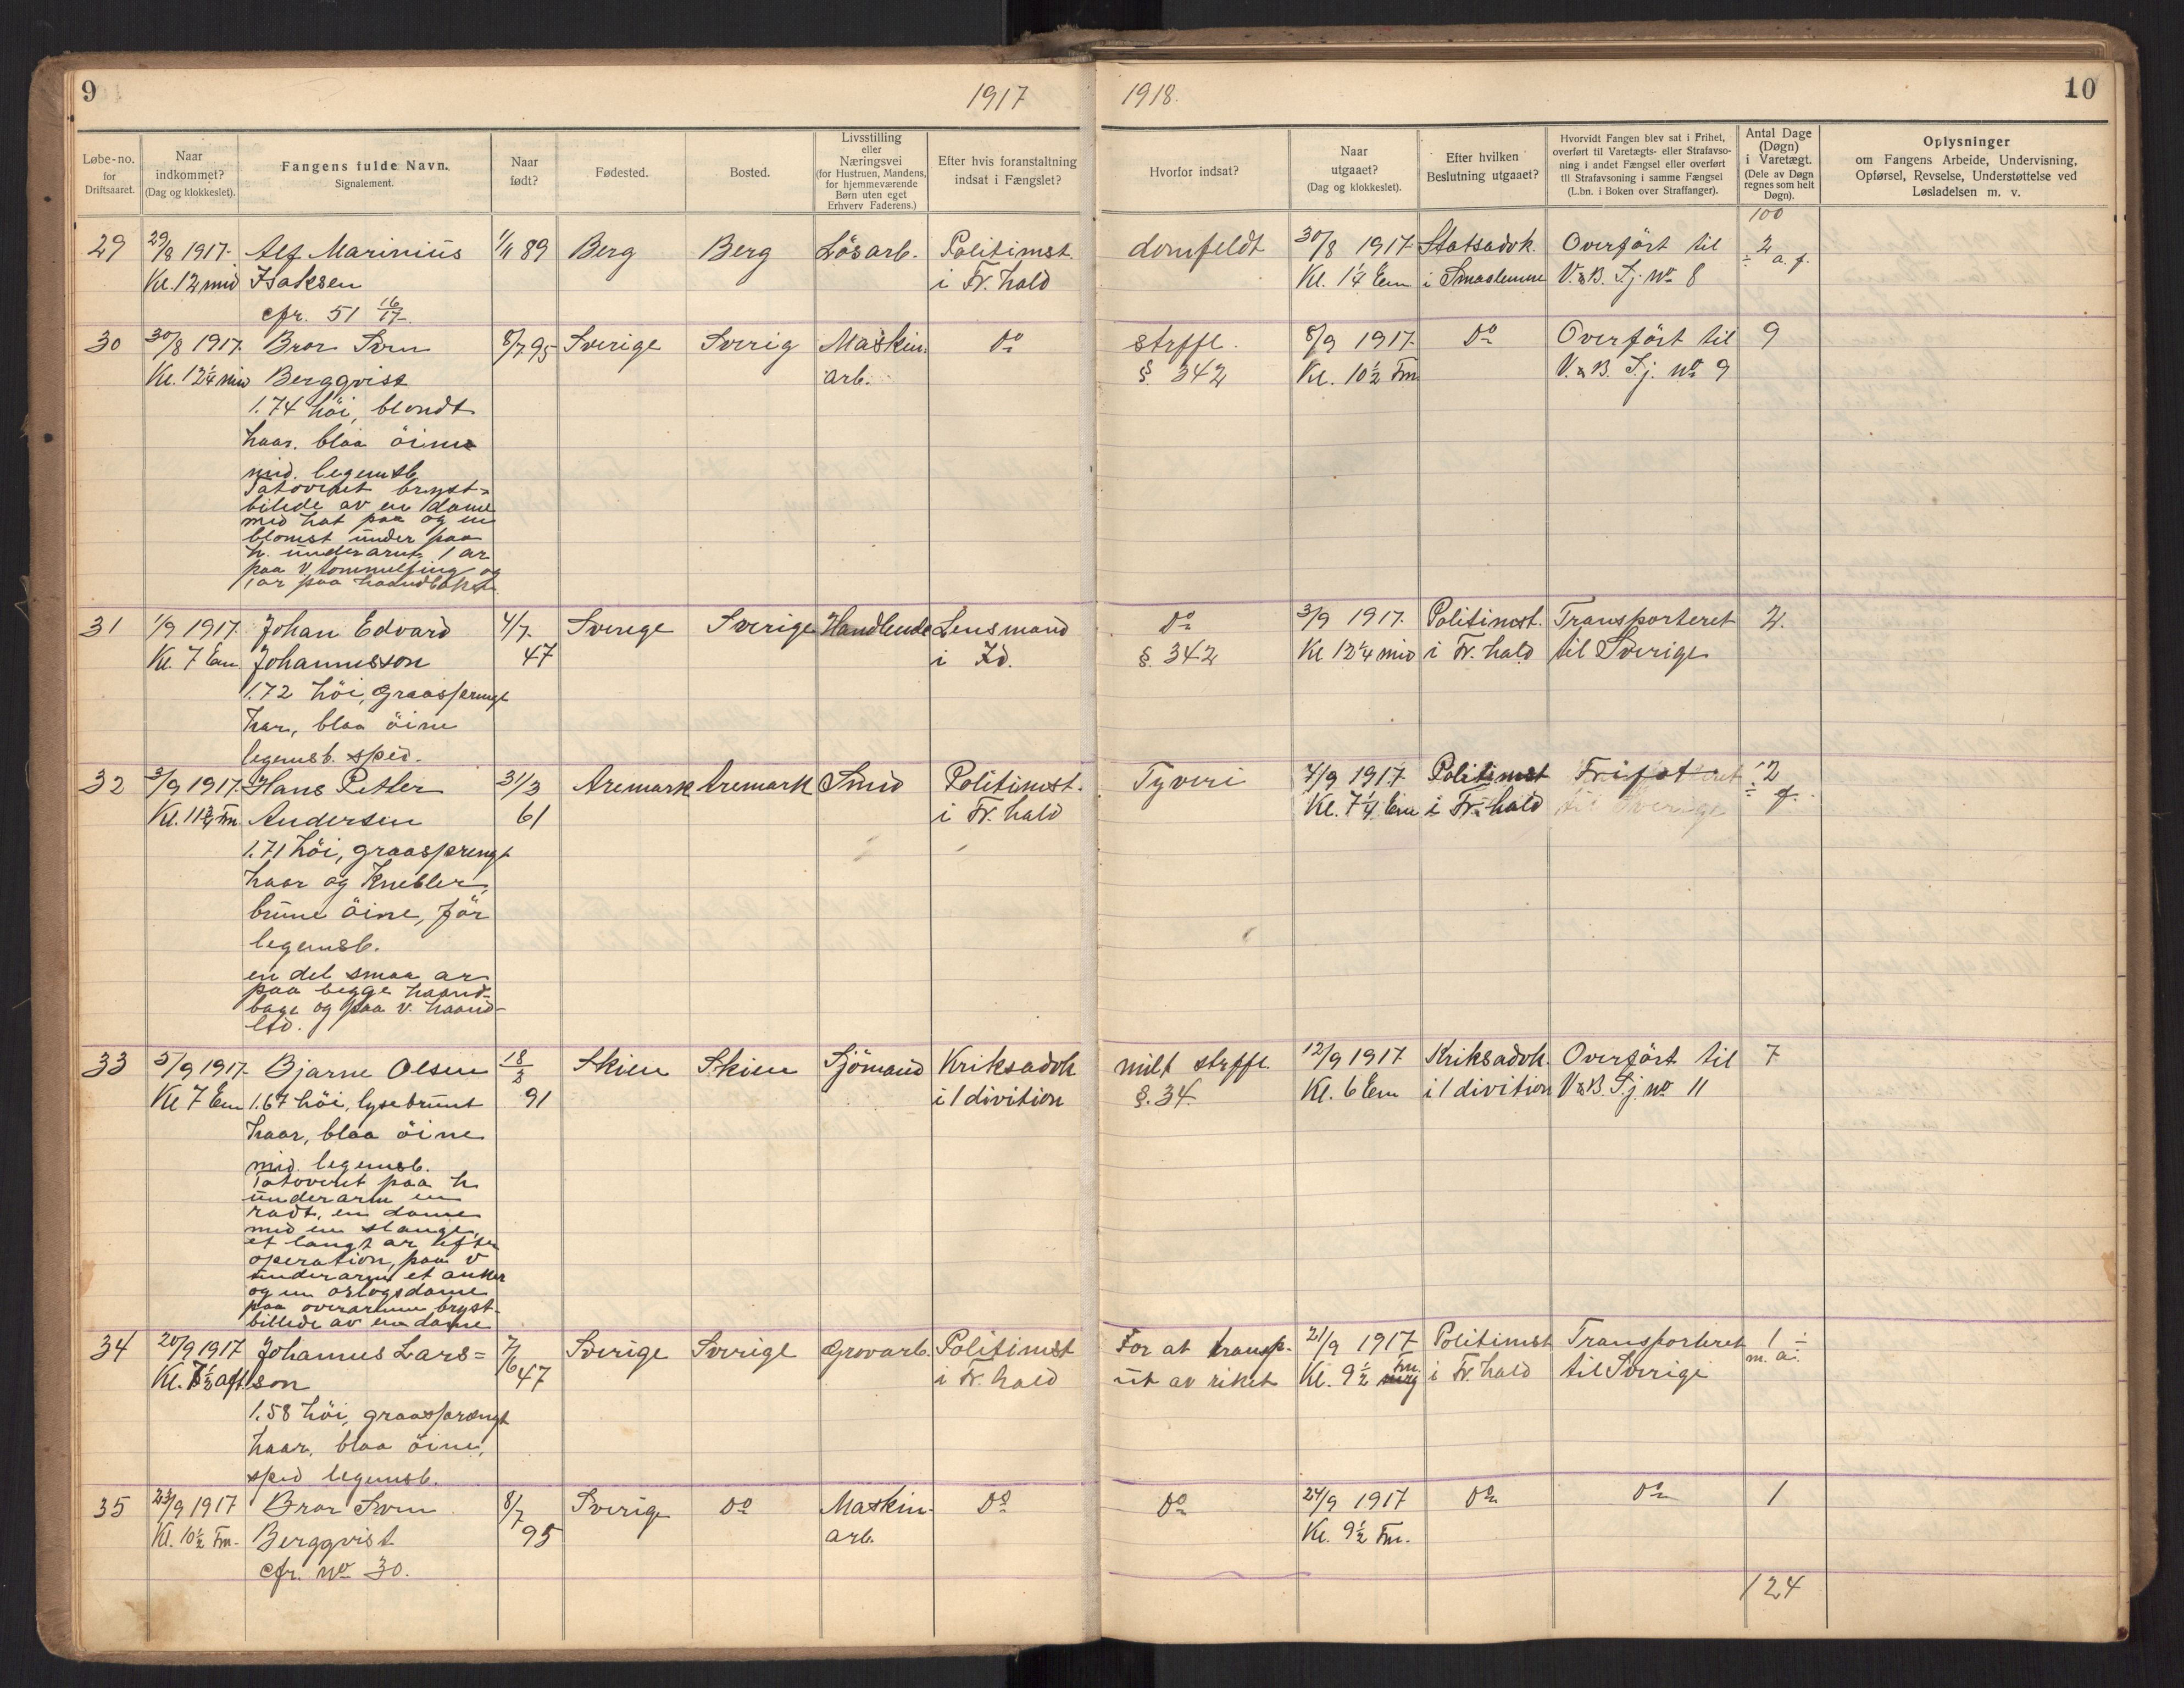 9
1917
1918.
10
Løbe-no. for Driftsaaret.
Naar indkommet? (Dag og klokkeslet).
Fangens fulde Navn. Signalement.
Naar født?
Fødested.
Bosted.
Livsstilling eller Næringsvei (for Hustruen, Mandens, for hjemmeværende Børn uten eget Erhverv Faderens.)
Efter hvis foranstaltning indsat i Fængslet?
Hvorfor indsat?
Naar utgaaet? (Dag og klokkeslet).
Efter hvilken Beslutning utgaaet?
Hvorvidt Fangen blev sat i Frihet, overført til Varetægts- eller Strafavsoning i andet Fængsel eller overført til Strafavsoning i samme Fængsel (L.bn. i Boken over Straffanger).
Antal Dage (Døgn) i Varetægt. (Dele av Døgn regnes som helt Døgn).
Oplysninger om Fangens Arbeide, Undervisning, Opførsel, Revselse, Understøttelse ved Løsladelsen m. v.
100
29 29/8 1917. Alf Marinius 1/11 89 Berg Berg Lösarb. Politimst. domfeldt 30/8 1917 Statsadvk. Overfört til 2
Kl. 12 mid Isaksen i Fr. hald Kl. 1¼ Em i Smaalenene V. & B. Fj. No 8 ÷ a. f.
cfr. 51 16/17
30 30/8 1917. Bror Sven 8/7 95 Sverige Sverig Maskin. Do strffl. 8/9 1917. Do Overfört til 9
Kl. 12¼ mid Bergqvist arb. §. 342 Kl. 10½ Fm V. & B. Fj. No 9
1.74 höi, blondt
haar. blaa öine
mid. legemsb.
Tatoveret bryst=
billede av en dame
med hat paa og en
blomst under paa
h. underarm, 1 ar
paa v. tommelfing og
1 ar paa haandbaken
31 1/9 1917. Johan Edvard 4/7. Sverige Sverige Handlende Lensmand Do 3/9 1917. Politimst. Transporteret 2.
Kl. 7 Em. Johannesson 47 i Id. §. 342 Kl 12¼ mid i Fr. hald til Sverige
1.72 höi, graasprengt
haar, blaa öine
legemsb. sped.
32 3/9 1917. Hans Petter 31/3 Aremark Aremark Smed Politimst. Tyveri 4/9 1917 Politimst Frifot 2
Kl. 11¾ Fm. Andersen 61 i Fr. hald Kl. 7¼ Em i Fr. hald til Sverige ÷ f.
1.71 höi, graasprengt
haar og Knebler,
brune öine, för
legemsb.
en del smaa ar
paa begge haand-
bage og paa v. haand-
led.
33 5/9 1917. Bjarne Olsen 18/3 Skien Skien Sjömand Kriksadvk milt strffl. 12/9 1917 Kriksadvk. Overfört til 7
Kl 7 Em 1.67 höi, lysebrunt 91 i 1 divition §. 34. Kl. 6 Em i 1 divition V. & B. Fj. No 11
haar, blaa öine
mid. legemsb.
Tatoveret paa h.
underarm en
radt, en dame
med en slange,
et langt ar efter
operation, paa v
underarm et anker
og en orlogsdame
paa overarmen bryst-
billede av en dame
34 20/9 1917 Johannes Lars= 7/6 Sverige Sverige Grovarb. Politimst For at transp. 21/9 1917 Politimst Transporteret 1 ÷
Kl. 7½ aft son 47 i Fr. hald ut av riket Kl. 9½ Fm. i Fr. hald til Sverige m. a.
1.58 höi, graasprængt
haar. blaa öine,
sped legemsb.
35 23/9 1917 Bror Sven 8/7 Sverige Do Maskin- Do Do 24/9 1917 Do Do 1
Kl. 10½ Fm. Bergqvist 95 arb. Kl. 9½ Fm.
cfr. No 30.
124